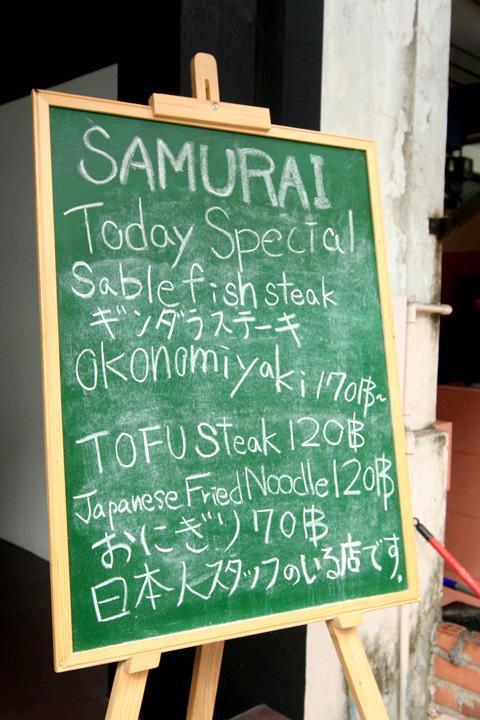 SAMURAI
Today Special
Sable fish steak
ギンダラステーキ
okonomiyaki 170฿~
TOFU Steak 120฿
Japanese Fried Noodle 120฿
おにぎり 70฿
日本人スタッフのいる店です.